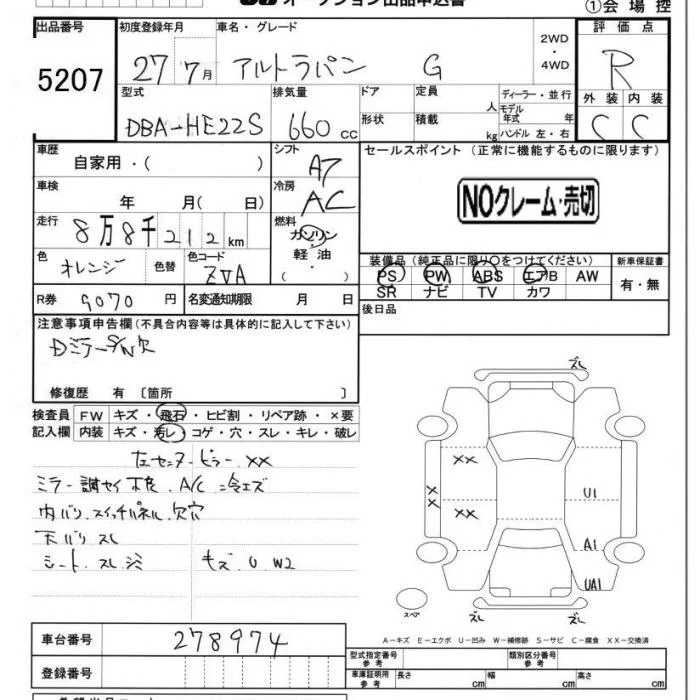 オークション出品申込書
①会場控
出品番号 初度登録年月 車名・グレード 2WD・4WD 評価点
5207 27 7月 アルトラパン G R
型式 排気量 ドア 定員 人 ディーラー・並行 外装 内装
DBA-HE22S 660cc 形状 積載 kg モデル年式 年 ハンドル 左・右 C C
車歴 自家用・( ) シフト A7 セールスポイント (正常に機能するものに限ります)
車検 年 月( 日) 冷房 AC
NOクレーム・売切
走行 8万8千212km 燃料 ガソリン・軽油・( )
色 オレンジ 色替 色コード ZVA
装備品 (純正品に限り○をつけてください) 新車保証書
PS PW ABS エアB AW 有・無
SR ナビ TV カワ
R券 9070円 名変通知期限 月 日 後日品
注意事項申告欄(不具合内容等は具体的に記入して下さい)
Dミラー
修復歴 有 〔箇所 〕
検査員記入欄 FW キズ・飛石・ヒビ割・リペア跡・×要
内装 キズ・汚レ・コゲ・穴・スレ・キレ・破レ
左センターピラーXX
ミラー調セイ不良 A/C冷エズ
内バリ、スイッチパネル欠穴
天バリスレ
シート、スレ、シミ キズ U W2
ズレ
XX
XX
XX
U1
A1
UA1
スペア
ズレ
ズレ
A-キズ E-エクボ U-凹み W-補修跡 S-サビ C-腐食 XX-交換済
車台番号 278974
登録番号
型式指定番号 参考 類別区分番号 参考
車庫証明用 参考 長さ cm 幅 cm 高さ cm